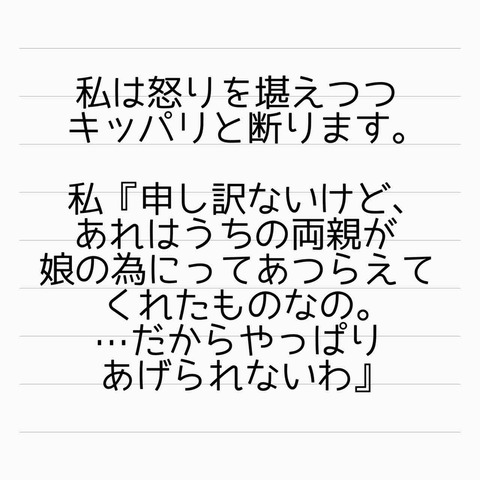 私は怒りを堪えつつ
キッパリと断ります。
私『申し訳ないけど、
あれはうちの両親が
娘の為にってあつらえて
くれたものなの。
…だからやっぱり
あげられないわ』